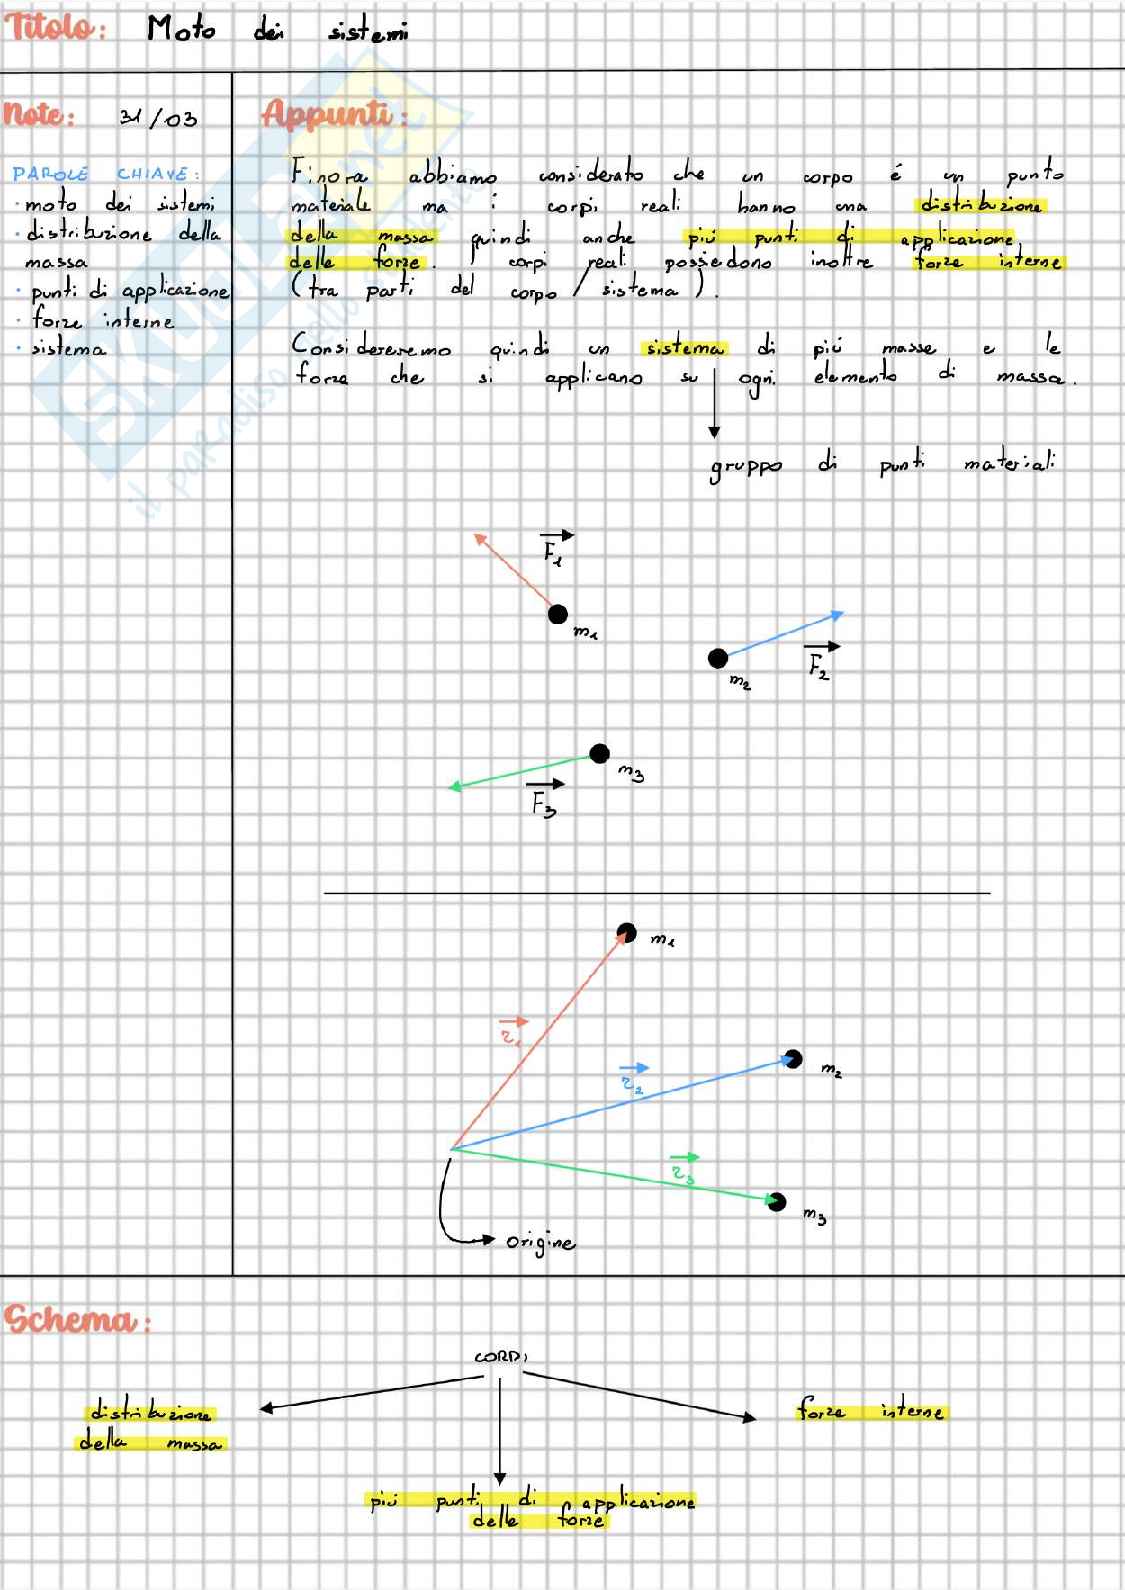 Titolo: Moto dei sistemi
Note: 31/03
PAROLE CHIAVE:
· moto dei sistemi
· distribuzione della
massa
· punti di applicazione
· forze interne
· sistema
Appunti:
Finora abbiamo considerato che un corpo é un punto
materiale ma i corpi reali hanno una distribuzione
della massa quindi anche più punti di applicazione
delle forze. I corpi reali possiedono inoltre forze interne
(tra parti del corpo / sistema).
Considereremo quindi un sistema di più masse e le
forze che si applicano su ogni elemento di massa.
gruppo di punti materiali
F1
m1
m2
F2
m3
F3
m1
r1
r2
m2
r3
m3
origine
Schema:
CORPI
distribuzione
della massa
forze interne
più punti di applicazione
delle forze
SKUOLA.net
il paradiso dello